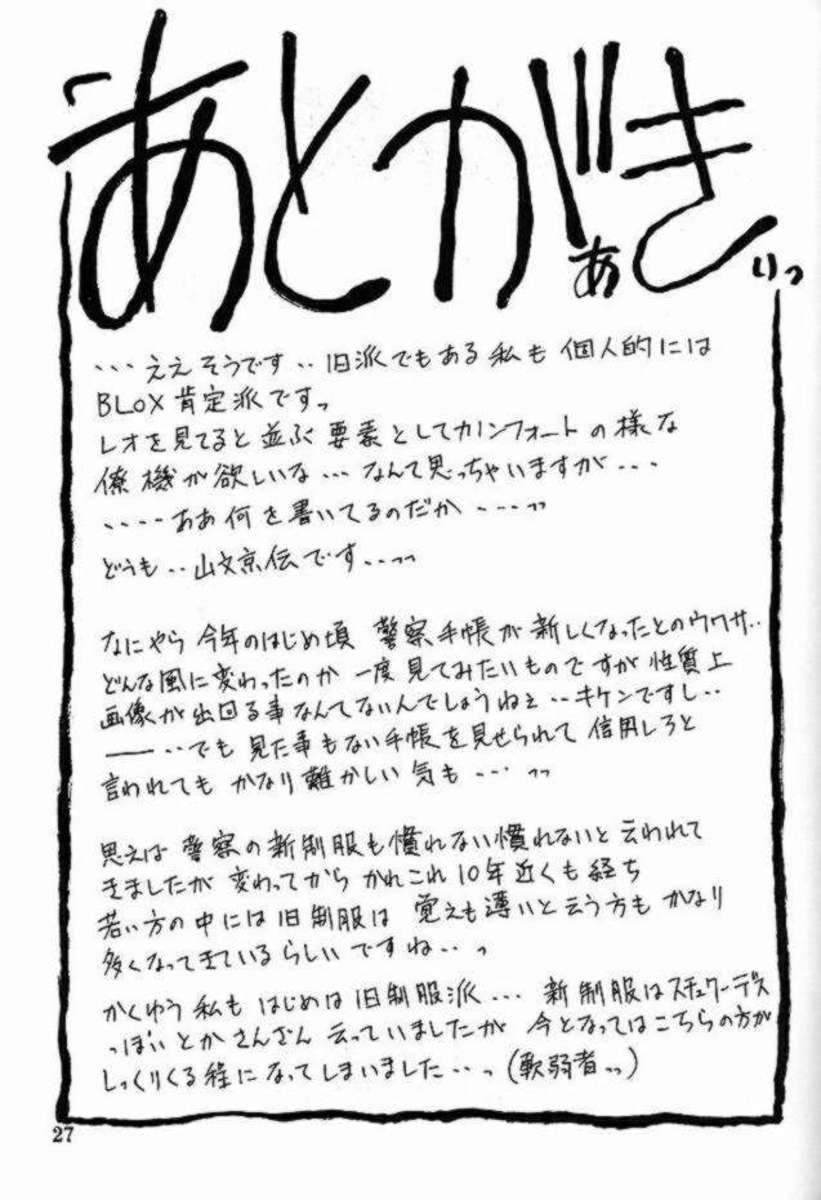 あとがき
ぁ
りっ
・・・ええそうです・・旧派でもある私も個人的には
BLOX肯定派ですっ
レオを見てると並ぶ要素としてカノンフォートの様な
僚機が欲しいな・・・なんて思っちゃいますが・・・
・・・・・ああ何を書いてるのだか・・・・っっ
どうも・・山文京伝です・・・っっ
なにやら今年のはじめ頃 警察手帳が新しくなったとのウワサ・・
どんな風に変わったのか一度見てみたいものですが性質上
画像が出回る事なんてないんでしょうねぇ・・キケンですし・・
――・・でも見た事もない手帳を見せられて信用しろと
言われてもかなり難かしい気も・・・っっ
思えば警察の新制服も慣れない慣れないと云われて
きましたが変わってからかれこれ10年近くも経ち
若い方の中には旧制服は覚えも薄いと云う方もかなり
多くなってきているらしいですね・・っ
かくゆう私もはじめは旧制服派・・・新制服はスチュワーデス
っぽいとかさんざん云っていましたが今となってはこちらの方が
しっくりくる程になってしまいました・・っ(軟弱者っっ)
27